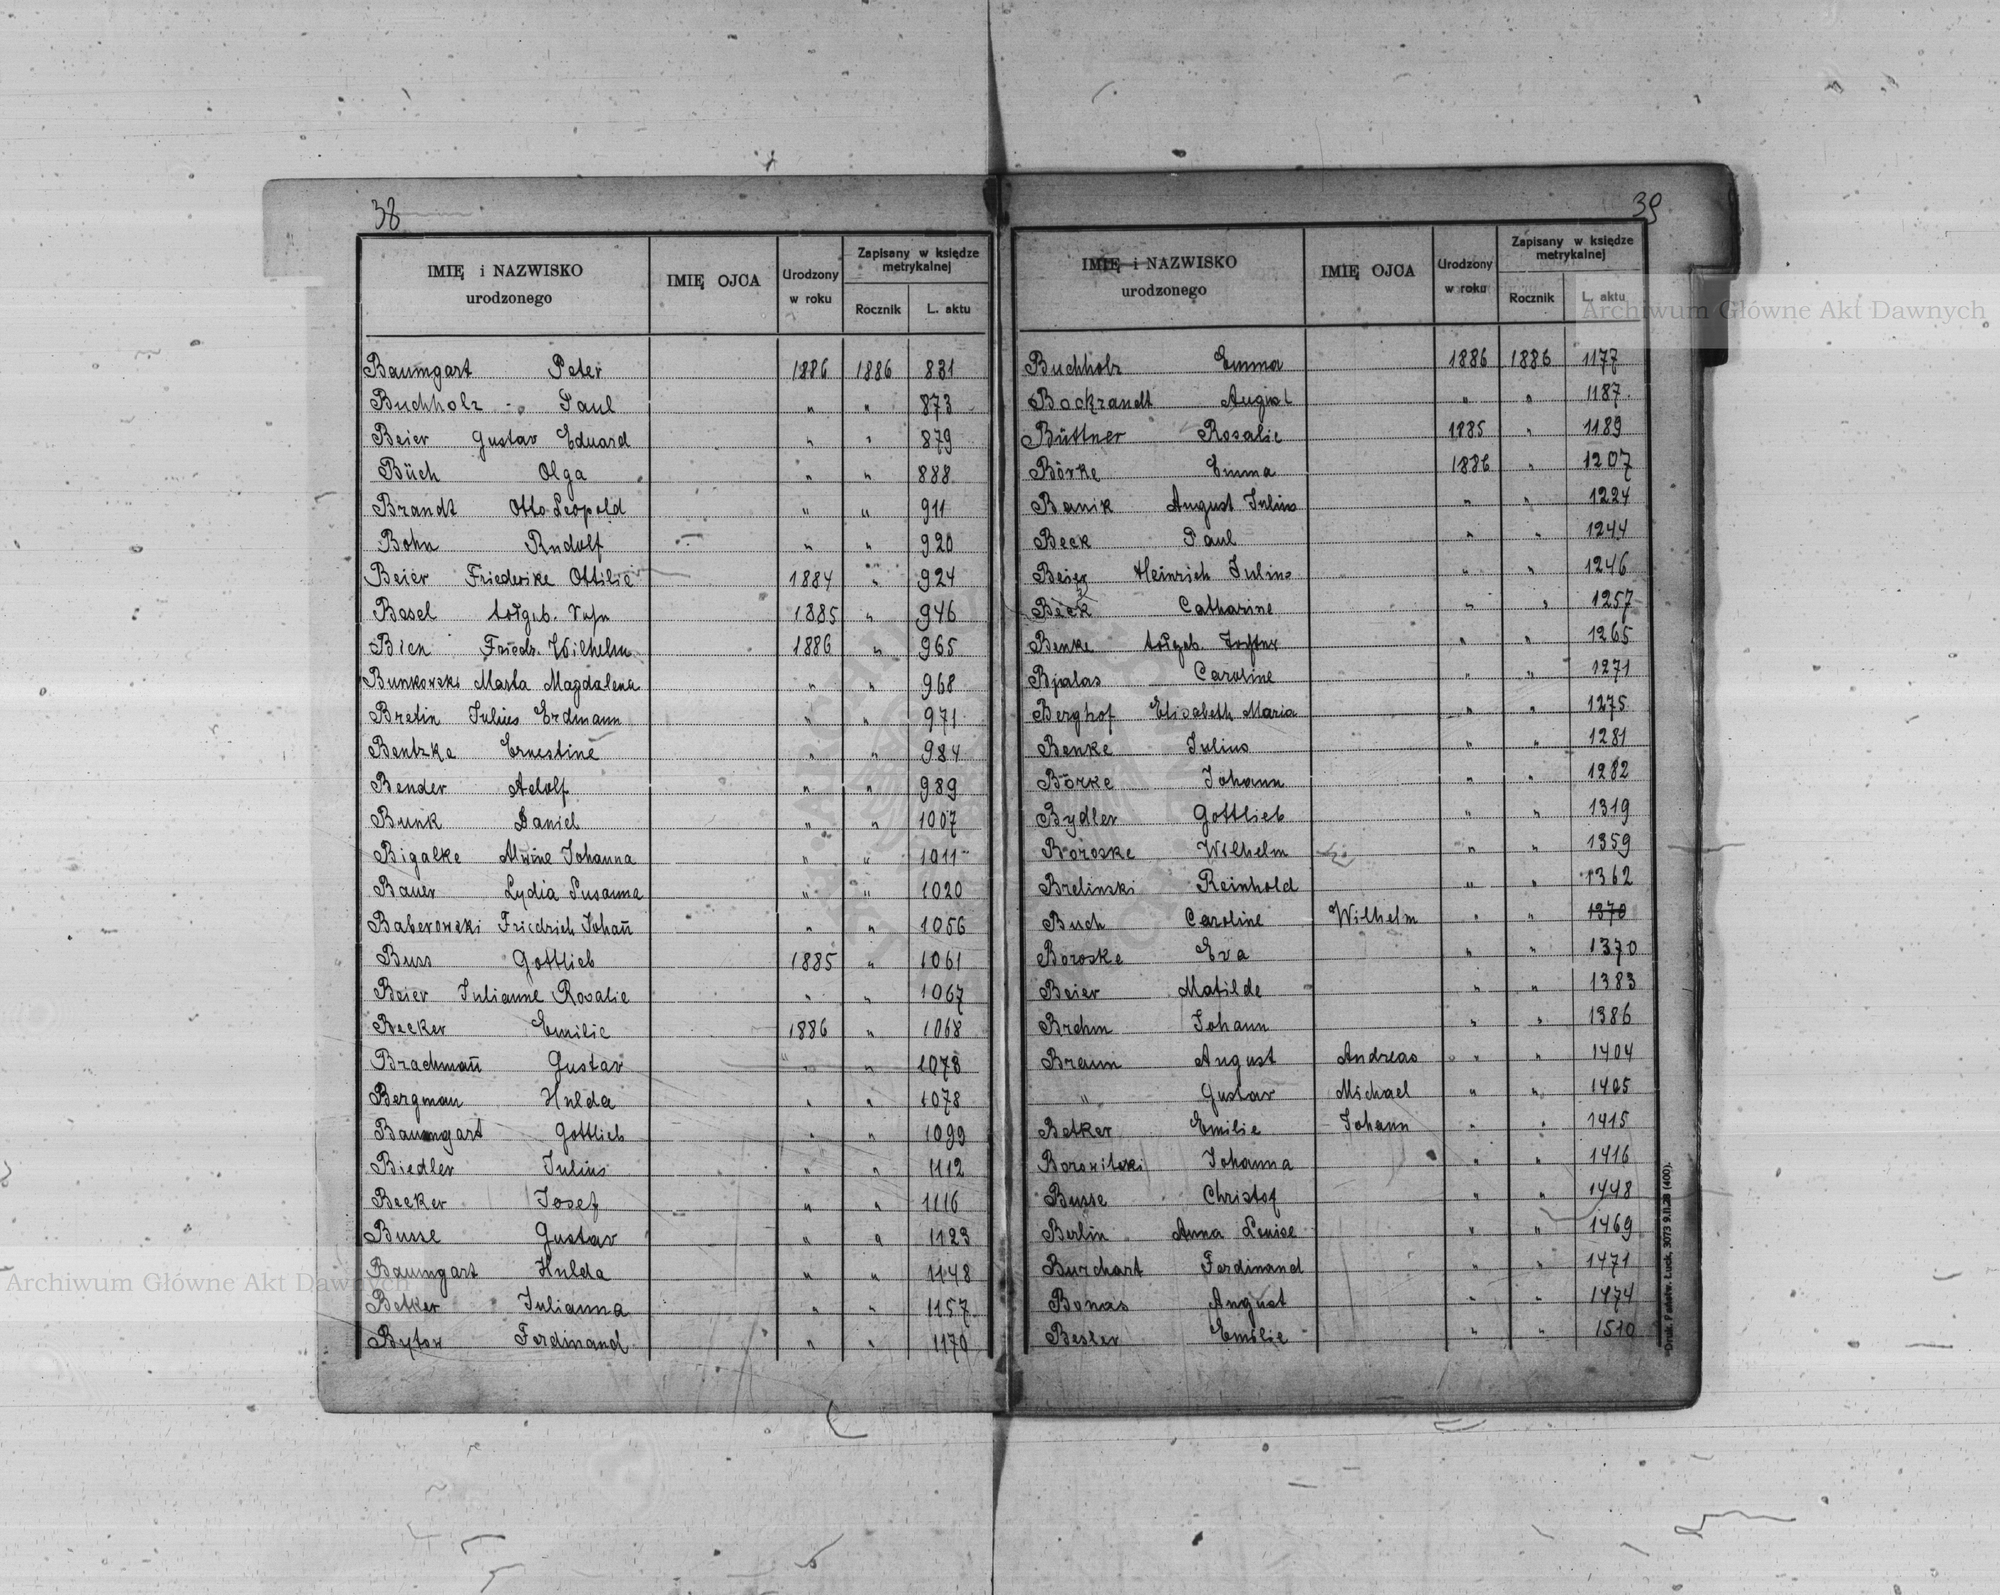 38
IMIĘ i NAZWISKO urodzonego | IMIĘ OJCA | Urodzony w roku | Zapisany w księdze metrykalnej
Rocznik | L. aktu
Baumgart Peter 1886 1886 831
Buchholz Paul " " 873
Beier Gustav Eduard " " 879
Büch Olga " " 888
Brandt Otto Leopold " " 911
Bohn Rudolf " " 920
Beier Friederike Ottilie 1884 " 924
Besel totgeb. Sohn 1885 " 946
Bien Friedr. Wilhelm 1886 " 965
Bunkowski Marta Magdalena " " 968
Bretin Julius Erdmann " " 971
Bentzke Ernestine " " 984
Bender Adolf " " 989
Bunk Daniel " " 1007
Bigalke Alwine Johanna " " 1011
Bauer Lydia Susanna " " 1020
Baberowski Friedrich Johañ " " 1056
Buss Gottlieb 1885 " 1061
Beier Julianne Rosalie " " 1067
Becker Emilie 1886 " 1068
Brachmañ Gustav " " 1073
Bergman Hulda " " 1078
Baumgart Gottlieb " " 1099
Biedler Julius " " 1112
Becker Josef " " 1116
Busse Gustav " " 1123
Baumgart Hulda " " 1148
Betker Julianna " " 1157
Bytow Ferdinand " " 1170
39
IMIĘ i NAZWISKO urodzonego | IMIĘ OJCA | Urodzony w roku | Zapisany w księdze metrykalnej
Rocznik | L. aktu
Buchholz Emma 1886 1886 1177
Bockrandt August " " 1187
Büttner Rosalie 1885 " 1189
Börke Emma 1886 " 1207
Banik August Julius " " 1224
Beck Paul " " 1244
Beier Heinrich Julius " " 1246
Beck Catharine " " 1257
Benke totgeb. Tochter " " 1265
Bjalas Caroline " " 1271
Berghof Elisabeth Maria " " 1275
Benke Julius " " 1281
Börke Johann " " 1282
Bydler Gottlieb " " 1319
Boroske Wilhelm " " 1359
Brelinski Reinhold " " 1362
Buch Caroline Wilhelm " " 1370
Boroske Eva " " 1370
Beier Matilde " " 1383
Brehm Johann " " 1386
Braun August Andreas " " 1404
" Gustav Michael " " 1405
Betker Emilie Johann " " 1415
Johanna " " 1416
Busse Christof " " 1448
Berlin Anna Louise " " 1469
Burchart Ferdinand " " 1471
Bonas August " " 1474
Besler Emilie " " 1510
Druk. Państw. Łuck. 3073 9.II.28 (400).
Archiwum Główne Akt Dawnych
Archiwum Główne Akt Dawnych